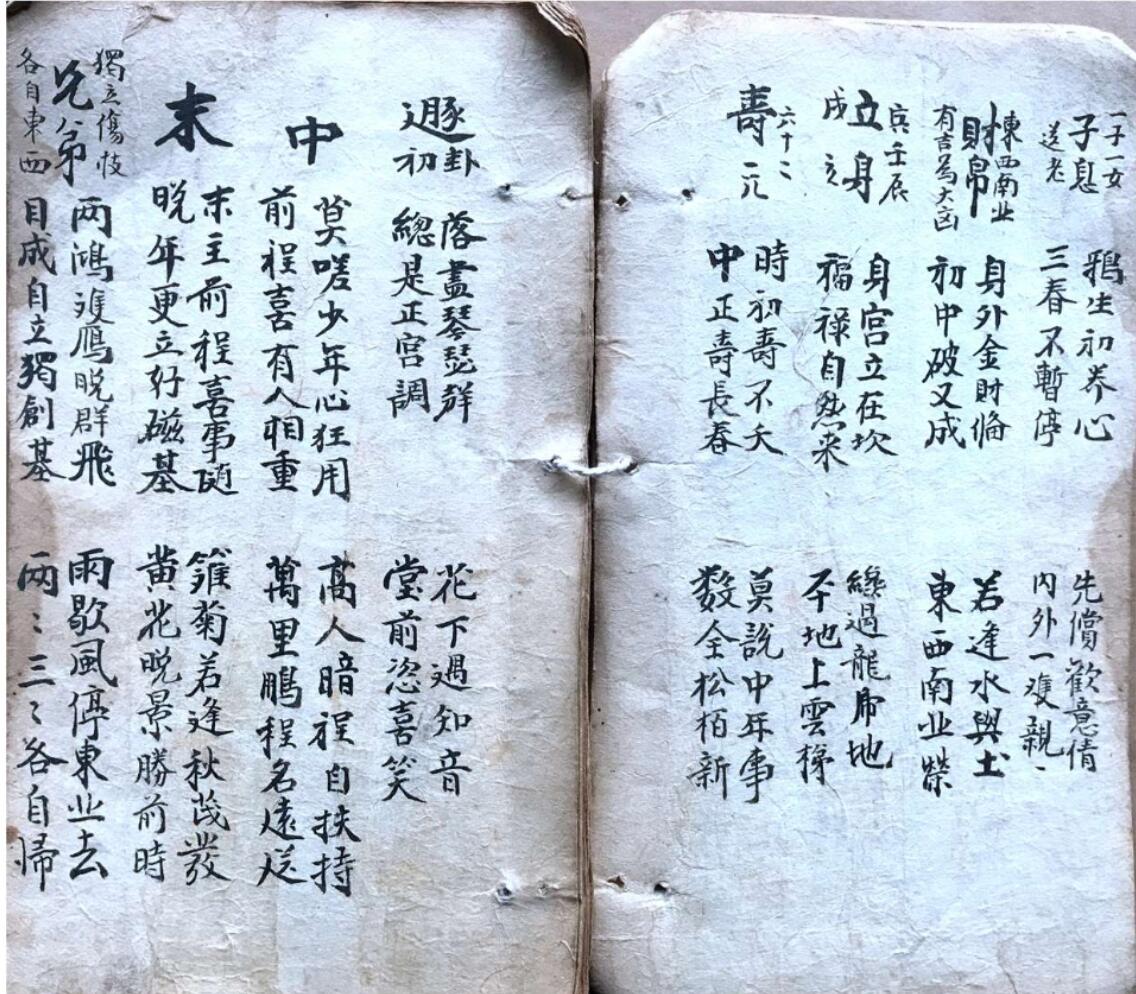 一子一女
子息
送老
鴉生初养心
三春不暫停
先償歡意倩
内外一𨿅親
東西南业
財帛
有吉為大凶
身外金財俻
初中破又成
若逢水與土
東西南业榮
立身
成立
身宫立在坎
福禄自然来
纔過龍席地
平地上雲梯
六十二
壽元
時初壽不夭
中正壽長春
莫說中年事
数全松栢新
遯卦
初
落盡琴瑟群
總是正宫調
花下遇知音
堂前恣喜笑
中
莫嗟少年心狂用
前程喜有人相重
髙人暗程自扶持
萬里鹏程名遠送
末
末主前程喜事随
晚年更立好磁基
籬菊若逢秋茂發
黄花晚景勝前時
獨立傷枝
兄弟
各自東西
两鴻𨿅鴈晚群飛
目成自立獨創基
雨歇風停東业去
两〻三〻各自歸